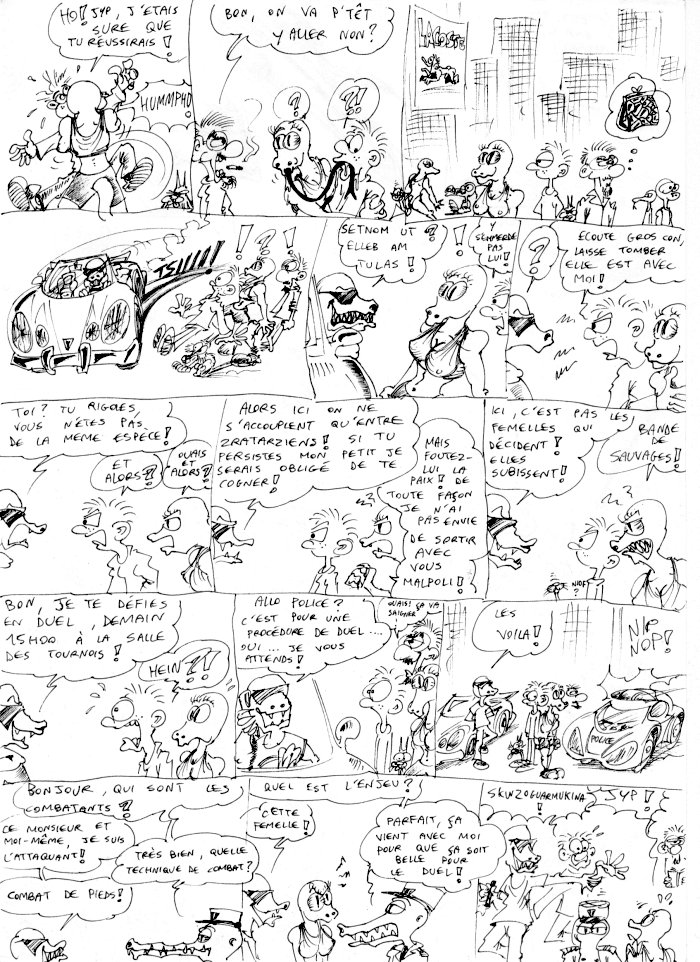 HO! JYP, J'ÉTAIS
SURE QUE
TU RÉUSSIRAIS!
HUMMPHO!
BON, ON VA P'TÊT
Y ALLER NON?
?
?!
LACOSTE
TSIIIII!
! ! !
SETNOM UT ?
ELLEB AM
JULAS!
!
Y
S'EMMERDE
PAS
LUI!
?
ECOUTE GROS CON,
LAISSE TOMBER
ELLE EST AVEC
MOI!
TOI? TU RIGOLES,
VOUS N'ÊTES PAS
DE LA MEME ESPÈCE!
ET
ALORS?!
OUAIS
ET
ALORS?!
ALORS ICI ON NE
S'ACCOUPLENT QU'ENTRE
ZRATARZIENS! SI TU
PERSISTES MON PETIT JE
SERAIS OBLIGÉ DE TE
COGNER!
MAIS
FOUTEZ-
LUI LA
PAIX! DE
TOUTE FAÇON
JE N'AI
PAS ENVIE
DE SORTIR
AVEC
VOUS
MALPOLI!
ICI, C'EST PAS LES
FEMELLES QUI
DÉCIDENT!
ELLES
SUBISSENT!
BANDE
DE
SAUVAGES!
???
?
BON, JE TE DÉFIES
EN DUEL, DEMAIN
15H00 À LA SALLE
DES TOURNOIS!
HEIN?!
ALLO POLICE?
C'EST POUR UNE
PROCÉDURE DE DUEL ...
OUI ... JE VOUS
ATTENDS!
OUAIS! ÇA VA
SAIGNER!
LES
VOILA!
NIP
NOP!
POLICE
BONJOUR, QUI SONT LES
COMBATANTS?
CE MONSIEUR ET
MOI-MÊME, JE SUIS
L'ATTAQUANT!
TRÈS BIEN, QUELLE
TECHNIQUE DE COMBAT?
COMBAT DE PIEDS!
QUEL EST L'ENJEU?
CETTE
FEMELLE!
PARFAIT, ÇA
VIENT AVEC MOI
POUR QUE ÇA SOIT
BELLE POUR
LE DUEL!
SKUNZOGUARMUKINA!
JYP!